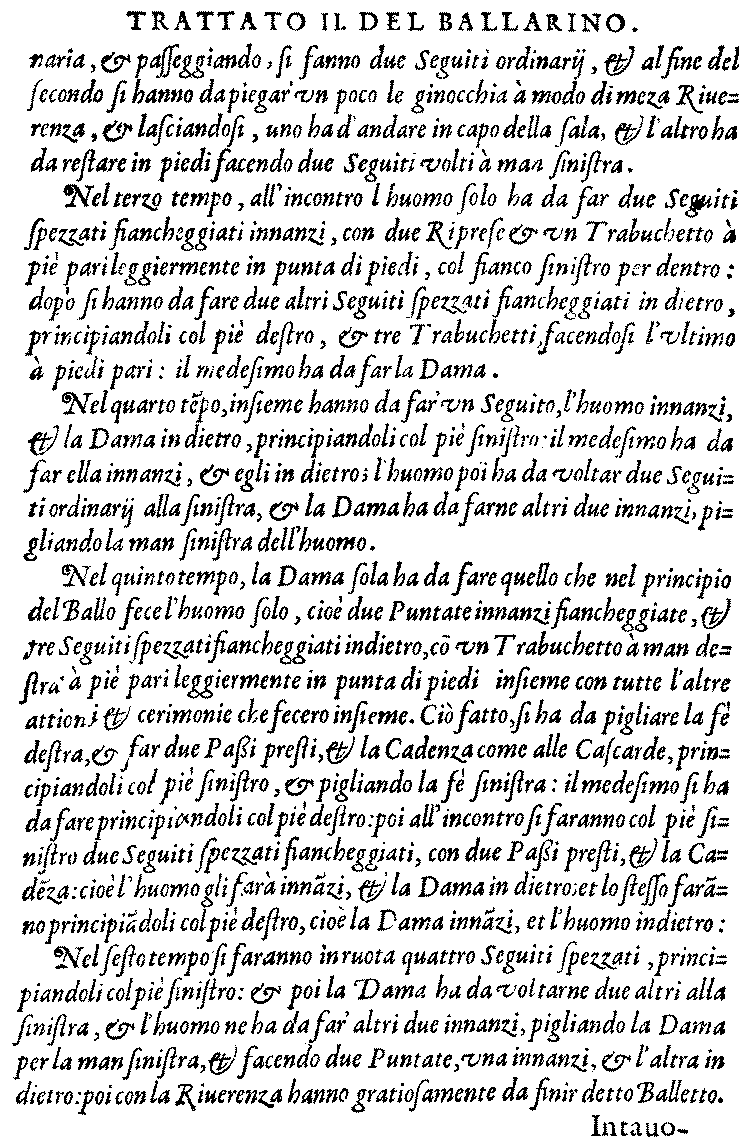 TRATTATO II. DEL BALLARINO.
naria, & paſſeggiando, ſi fanno due Seguiti ordinarij, & al fine del
ſecondo ſi hanno da piegar'vn poco le ginocchia à modo di meza Riue=
renza, & laſciandoſi, uno ha d'andare in capo della ſala, & l'altro ha
da reſtare in piedi facendo due Seguiti volti à man ſiniſtra.
Nel terzo tempo, all'incontro l huomo ſolo ha da far due Seguiti
ſpezzati fiancheggiati innanzi, con due Ripreſe & vn Trabuchetto à
piè pari leggiermente in punta di piedi, col fianco ſiniſtro per dentro:
dopò ſi hanno da fare due altri Seguiti ſpezzati fiancheggiati in dietro,
principiandoli col piè deſtro, & tre Trabuchetti, facendoſi l'vltimo
à piedi pari: il medeſimo ha da far la Dama.
Nel quarto tẽpo, inſieme hanno da far'vn Seguito, l'huomo innanzi,
& la Dama in dietro, principiandoli col piè ſiniſtro: il medeſimo ha da
far ella innanzi, & egli in dietro; l'huomo poi ha da voltar due Segui=
ti ordinarij alla ſiniſtra, & la Dama ha da farne altri due innanzi, pi=
gliando la man ſiniſtra dell'huomo.
Nel quinto tempo, la Dama ſola ha da fare quello che nel principio
del Ballo fece l'huomo ſolo, cioè due Puntate innanzi fiancheggiate, &
tre Seguiti ſpezzati fiancheggiati indietro, cõ vn Trabuchetto à man de=
ſtra à piè pari leggiermente in punta di piedi inſieme con tutte l'altre
attioni & cerimonie che fecero inſieme. Ciò fatto, ſi ha da pigliare la fè
deſtra, & far due Paßi preſti, & la Cadenza come alle Caſcarde, prin=
cipiandoli col piè ſiniſtro, & pigliando la fè ſiniſtra: il medeſimo ſi ha
da fare principiandoli col piè deſtro: poi all'incontro ſi faranno col piè ſi=
niſtro due Seguiti ſpezzati fiancheggiati, con due Paßi preſti, & la Ca=
dẽza: cioè l'huomo gli farà innãzi, & la Dama in dietro: et lo ſteſſo farã=
no principiãdoli col piè deſtro, cioè la Dama innãzi, et l'huomo indietro:
Nel ſeſto tempo ſi faranno in ruota quattro Seguiti ſpezzati, princi=
piandoli col piè ſiniſtro: & poi la Dama ha da voltarne due altri alla
ſiniſtra, & l'huomo ne ha da far' altri due innanzi, pigliando la Dama
per la man ſiniſtra, & facendo due Puntate, vna innanzi, & l'altra in
dietro: poi con la Riuerenza hanno gratioſamente da finir detto Balletto.
Intauo-